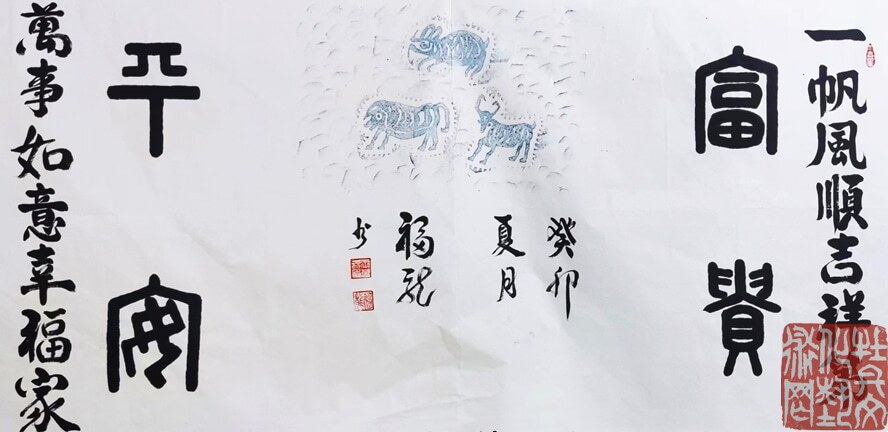 一帆風順吉祥
富貴
癸卯
夏月
福龍
书
平安
萬事如意幸福家